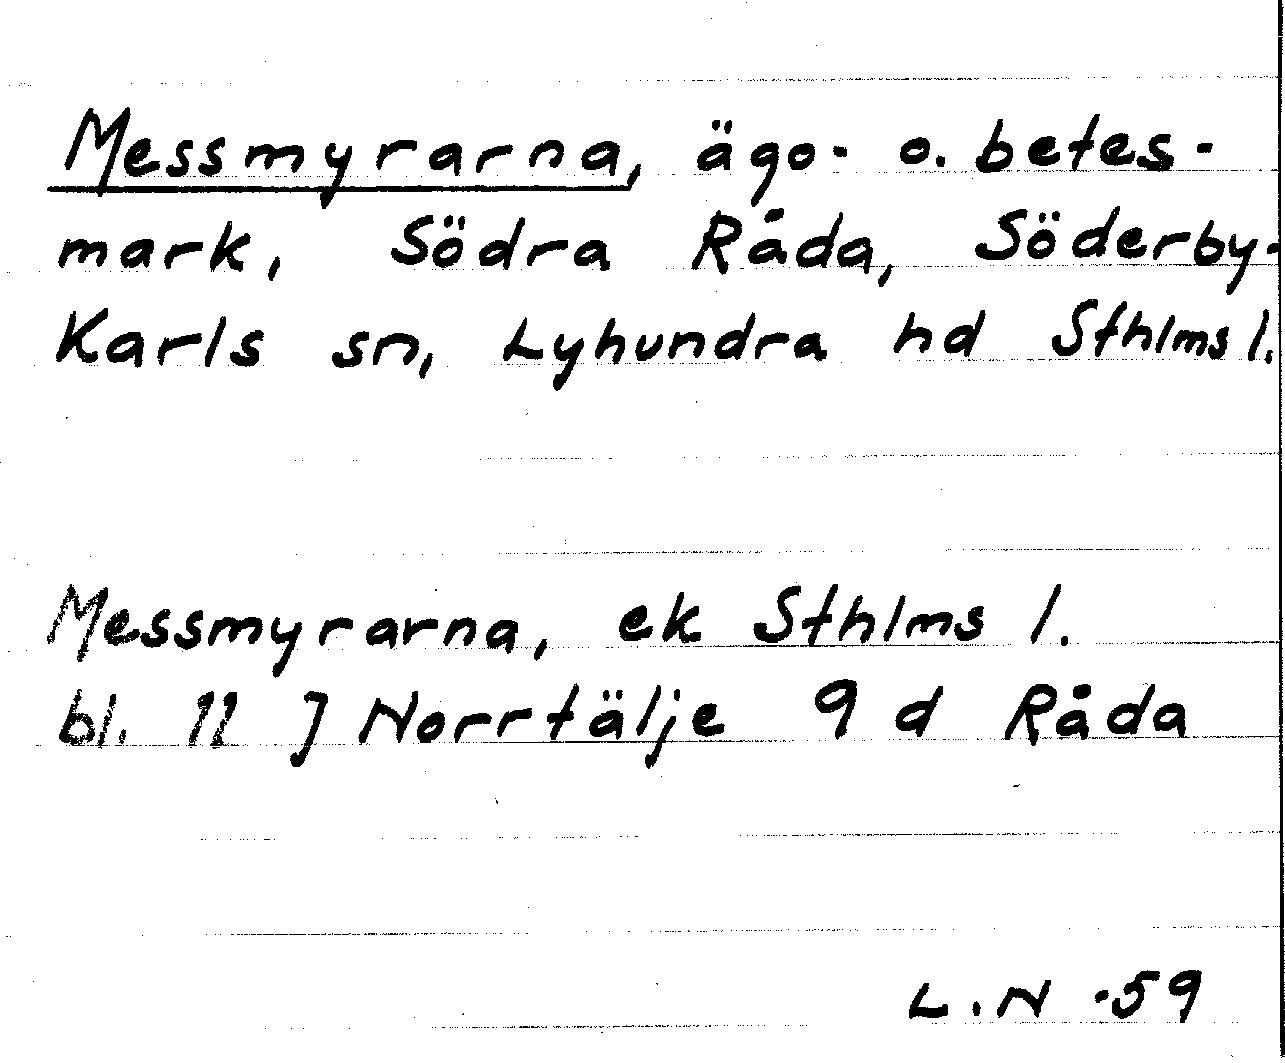 Messmyrarna, ägo- o. betes-
mark, Södra Råda, Söderby-
Karls sn, Lyhundra hd Sthlms l.
Messmyrarna, ek Sthlms l.
bl. 11 J Norrtälje 9 d Råda
L.N -59